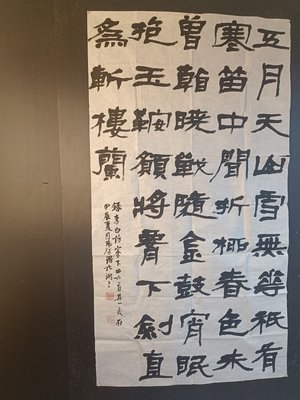 五月天山雪無華祇有
寒笛中聞折柳春色未
曾看曉戰隨金鼓宵眠
抱玉鞍願將腰下劍直
為斬樓蘭
錄李白詩塞下曲六首其一
甲辰夏月